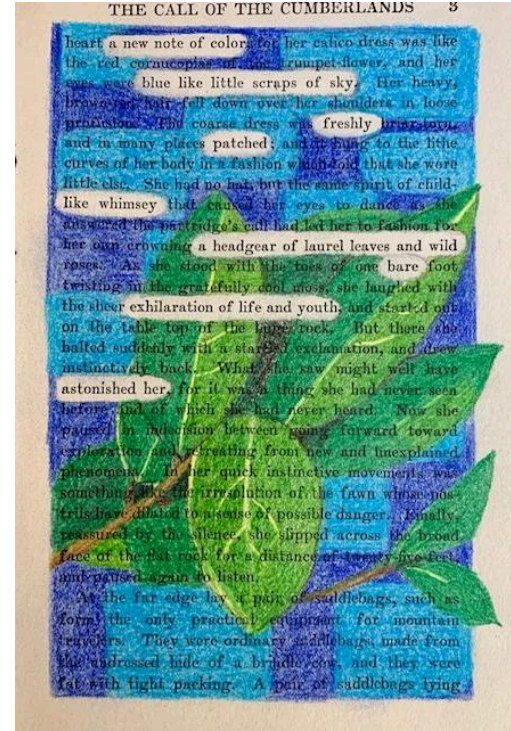 THE CALL OF THE CUMBERLANDS 3
heart a new note of color; for her calico dress was like
the red cornucopias of the trumpet-flower, and her
eyes were blue like little scraps of sky. Her heavy,
brown-red hair fell down over her shoulders in loose
profusion. The coarse dress was freshly briar-torn,
and in many places patched; and it hung to the lithe
curves of her body in a fashion which told that she wore
little else. She had no hat, but the same spirit of child-
like whimsey that caused her eyes to dance as she
answered the partridge's call had led her to fashion for
her own crowning a headgear of laurel leaves and wild
roses. As she stood with the toes of one bare foot
twisting in the gratefully cool moss, she laughed with
the sheer exhilaration of life and youth, and started out
on the table top of the huge rock. But there she
halted suddenly with a startled exclamation, and drew
instinctively back. What she saw might well have
astonished her, for it was a thing she had never seen
before and of which she had never heard. Now she
paused in indecision between going forward toward
exploration and retreating from new and unexplained
phenomena. In her quick instinctive movements was
something like the irresolution of the fawn whose nos-
trils have dilated to a sense of possible danger. Finally,
reassured by the silence, she slipped across the broad
face of the flat rock for a distance of twenty-five feet,
and paused again to listen.
At the far edge lay a pair of saddlebags, such as
form the only practical equipment for mountain
travelers. They were ordinary saddlebags, made from
the undressed hide of a brindle cow, and they were
fat with tight packing. A pair of saddlebags lying